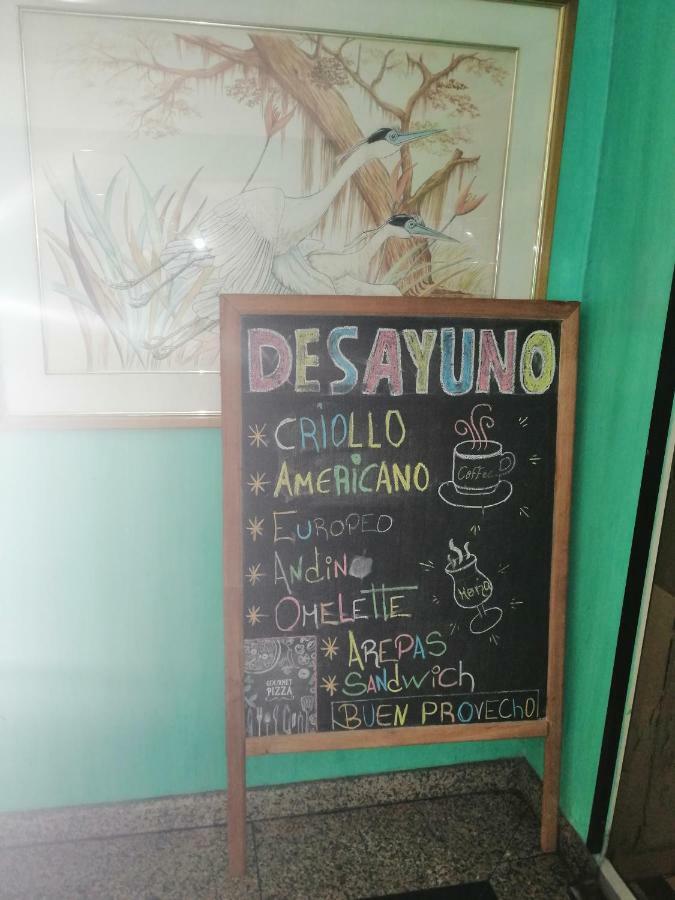 DESAYUNO
* CRIOLLO
* AMERICANO
* EUROPEO
* ANDINO
* OMELETTE
* AREPAS
* SANDWICH
BUEN PROVECHO
Coffee
GOURMET
PIZZA